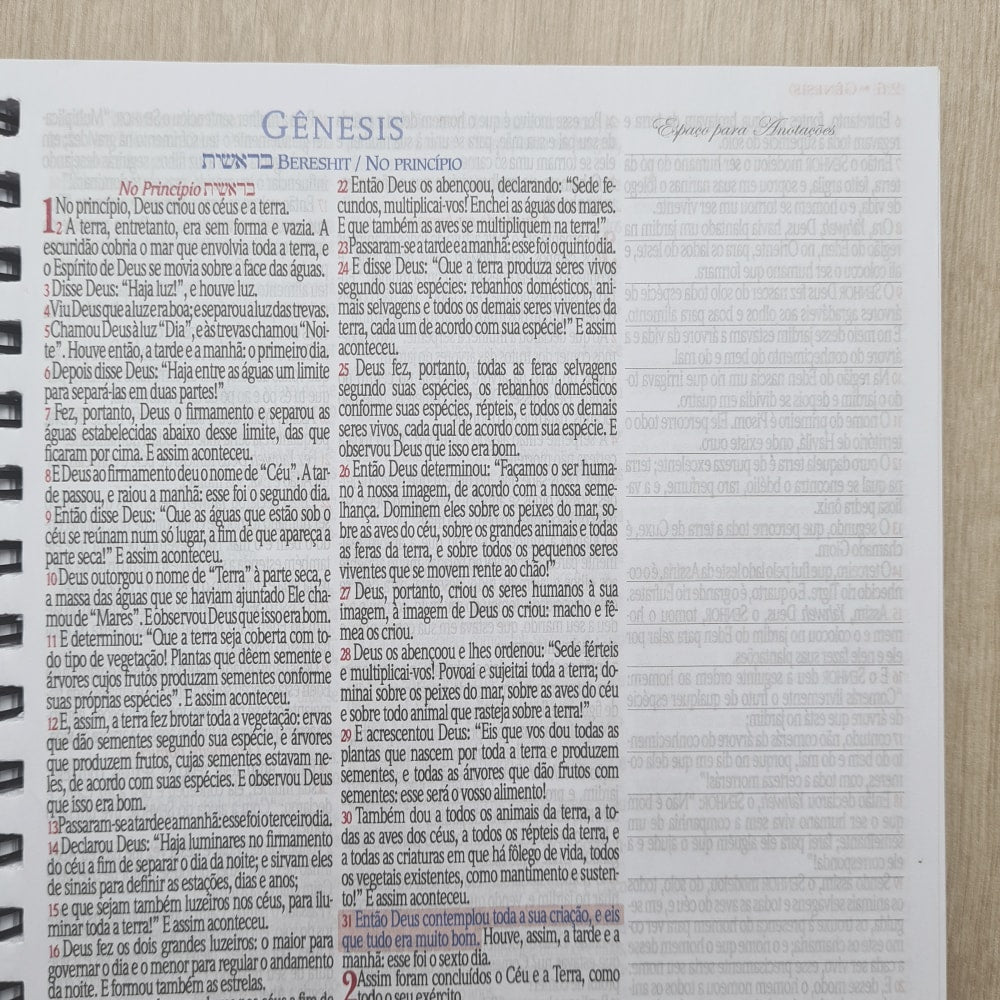 GÊNESIS
בראשית BERESHIT / NO PRINCÍPIO
No Princípio בראשית
1 No princípio, Deus criou os céus e a terra.
2 A terra, entretanto, era sem forma e vazia. A
escuridão cobria o mar que envolvia toda a terra, e
o Espírito de Deus se movia sobre a face das águas.
3 Disse Deus: “Haja luz!”, e houve luz.
4 Viu Deus que a luz era boa; e separou a luz das trevas.
5 Chamou Deus à luz “Dia”, e às trevas chamou “Noi-
te”. Houve então, a tarde e a manhã: o primeiro dia.
6 Depois disse Deus: “Haja entre as águas um limite
para separá-las em duas partes!”.
7 Fez, portanto, Deus o firmamento e separou as
águas estabelecidas abaixo desse limite, das que
ficaram por cima. E assim aconteceu.
8 E Deus ao firmamento deu o nome de “Céu”. A tar-
de passou, e raiou a manhã: esse foi o segundo dia.
9 Então disse Deus: “Que as águas que estão sob o
céu se reúnam num só lugar, a fim de que apareça a
parte seca!” E assim aconteceu.
10 Deus outorgou o nome de “Terra” à parte seca, e
a massa das águas que se haviam ajuntado Ele cha-
mou de “Mares”. E observou Deus que isso era bom.
11 E determinou: “Que a terra seja coberta com to-
do tipo de vegetação! Plantas que dêem semente e
árvores cujos frutos produzam sementes conforme
suas próprias espécies”. E assim aconteceu.
12 E, assim, a terra fez brotar toda a vegetação: ervas
que dão sementes segundo sua espécie, e árvores
que produzem frutos, cujas sementes estavam ne-
les, de acordo com suas espécies. E observou Deus
que isso era bom.
13 Passaram-se a tarde e a manhã: esse foi o terceiro dia.
14 Declarou Deus: “Haja luminares no firmamento
do céu a fim de separar o dia da noite; e sirvam eles
de sinais para definir as estações, dias e anos;
15 e que sejam também luzeiros nos céus, para ilu-
minar toda a terra!” E assim aconteceu.
16 Deus fez os dois grandes luzeiros: o maior para
governar o dia e o menor para regular o andamento
da noite. E formou também as estrelas.
22 Então Deus os abençoou, declarando: “Sede fe-
cundos, multiplicai-vos! Enchei as águas dos mares.
E que também as aves se multipliquem na terra!”
23 Passaram-se a tarde e a manhã: esse foi o quinto dia.
24 E disse Deus: “Que a terra produza seres vivos
segundo suas espécies: rebanhos domésticos, ani-
mais selvagens e todos os demais seres viventes da
terra, cada um de acordo com sua espécie!” E assim
aconteceu.
25 Deus fez, portanto, todas as feras selvagens
segundo suas espécies, os rebanhos domésticos
conforme suas espécies, répteis, e todos os demais
seres vivos, cada qual de acordo com sua espécie. E
observou Deus que isso era bom.
26 Então Deus determinou: “Façamos o ser huma-
no à nossa imagem, de acordo com a nossa seme-
lhança. Dominem eles sobre os peixes do mar, so-
bre as aves do céu, sobre os grandes animais e todas
as feras da terra, e sobre todos os pequenos seres
viventes que se movem rente ao chão!”
27 Deus, portanto, criou os seres humanos à sua
imagem, à imagem de Deus os criou: macho e fê-
mea os criou.
28 Deus os abençoou e lhes ordenou: “Sede férteis
e multiplicai-vos! Povoai e sujeitai toda a terra; do-
minai sobre os peixes do mar, sobre as aves do céu
e sobre todo animal que rasteja sobre a terra!”
29 E acrescentou Deus: “Eis que vos dou todas as
plantas que nascem por toda a terra e produzem
sementes, e todas as árvores que dão frutos com
sementes: esse será o vosso alimento!
30 Também dou a todos os animais da terra, a to-
das as aves dos céus, a todos os répteis da terra, e
a todas as criaturas em que há fôlego de vida, todos
os vegetais existentes, como mantimento e susten-
to!” E assim aconteceu.
31 Então Deus contemplou toda a sua criação, e eis
que tudo era muito bom. Houve, assim, a tarde e a
manhã: esse foi o sexto dia.
2 Assim foram concluídos o Céu e a Terra, como
todo o seu exército.
Espaço para Anotações